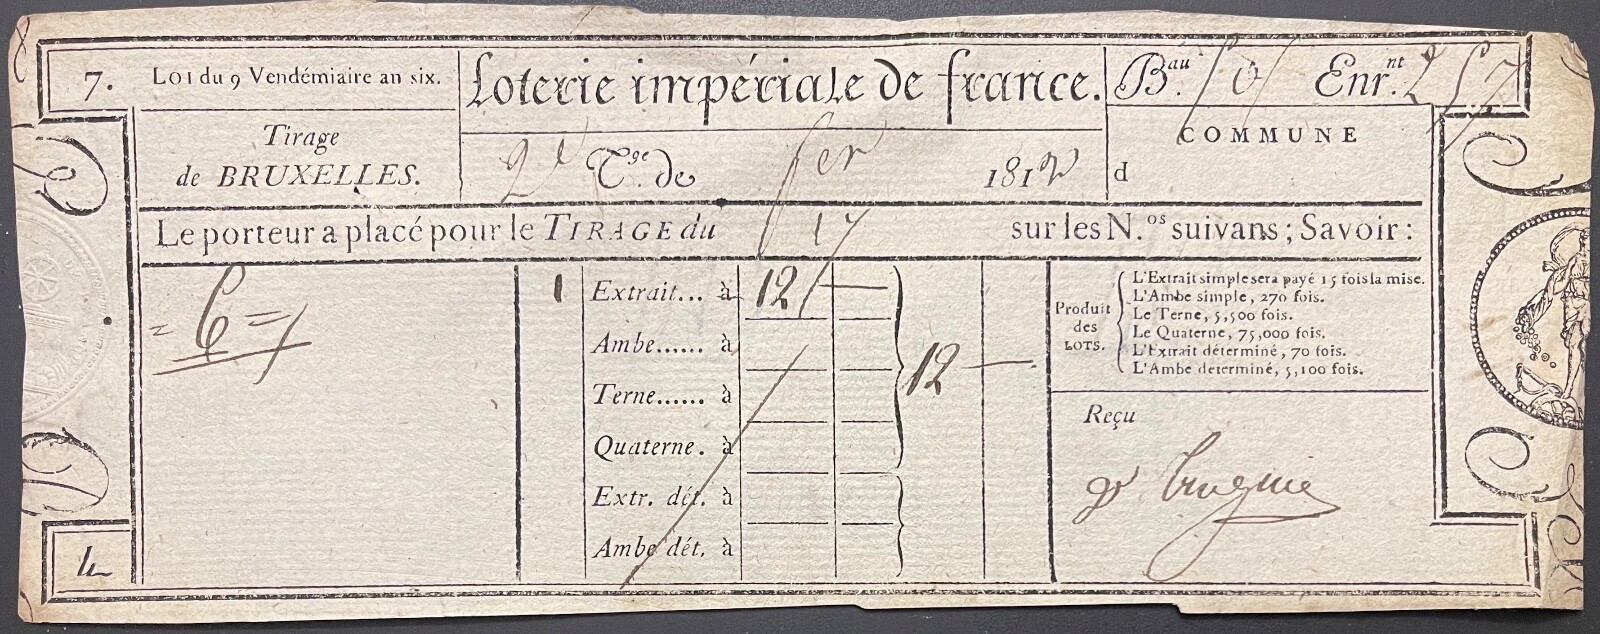 7. Loi du 9 Vendémiaire an six. Loterie impériale de france. B.au Enr.nt 257
Tirage de BRUXELLES. 2e T.ge de fer 1812 COMMUNE d
Le porteur a placé pour le TIRAGE du 17 sur les N.os suivans ; Savoir :
= 6 =
1 Extrait... à 12
Ambe...... à
Terne...... à
Quaterne. à
Extr. dét. à
Ambe dét. à
12
Produit des LOTS.
L'Extrait simple sera payé 15 fois la mise.
L'Ambe simple, 270 fois.
Le Terne, 5,500 fois.
Le Quaterne, 75,000 fois.
L'Extrait déterminé, 70 fois.
L'Ambe determiné, 5,100 fois.
Reçu
4